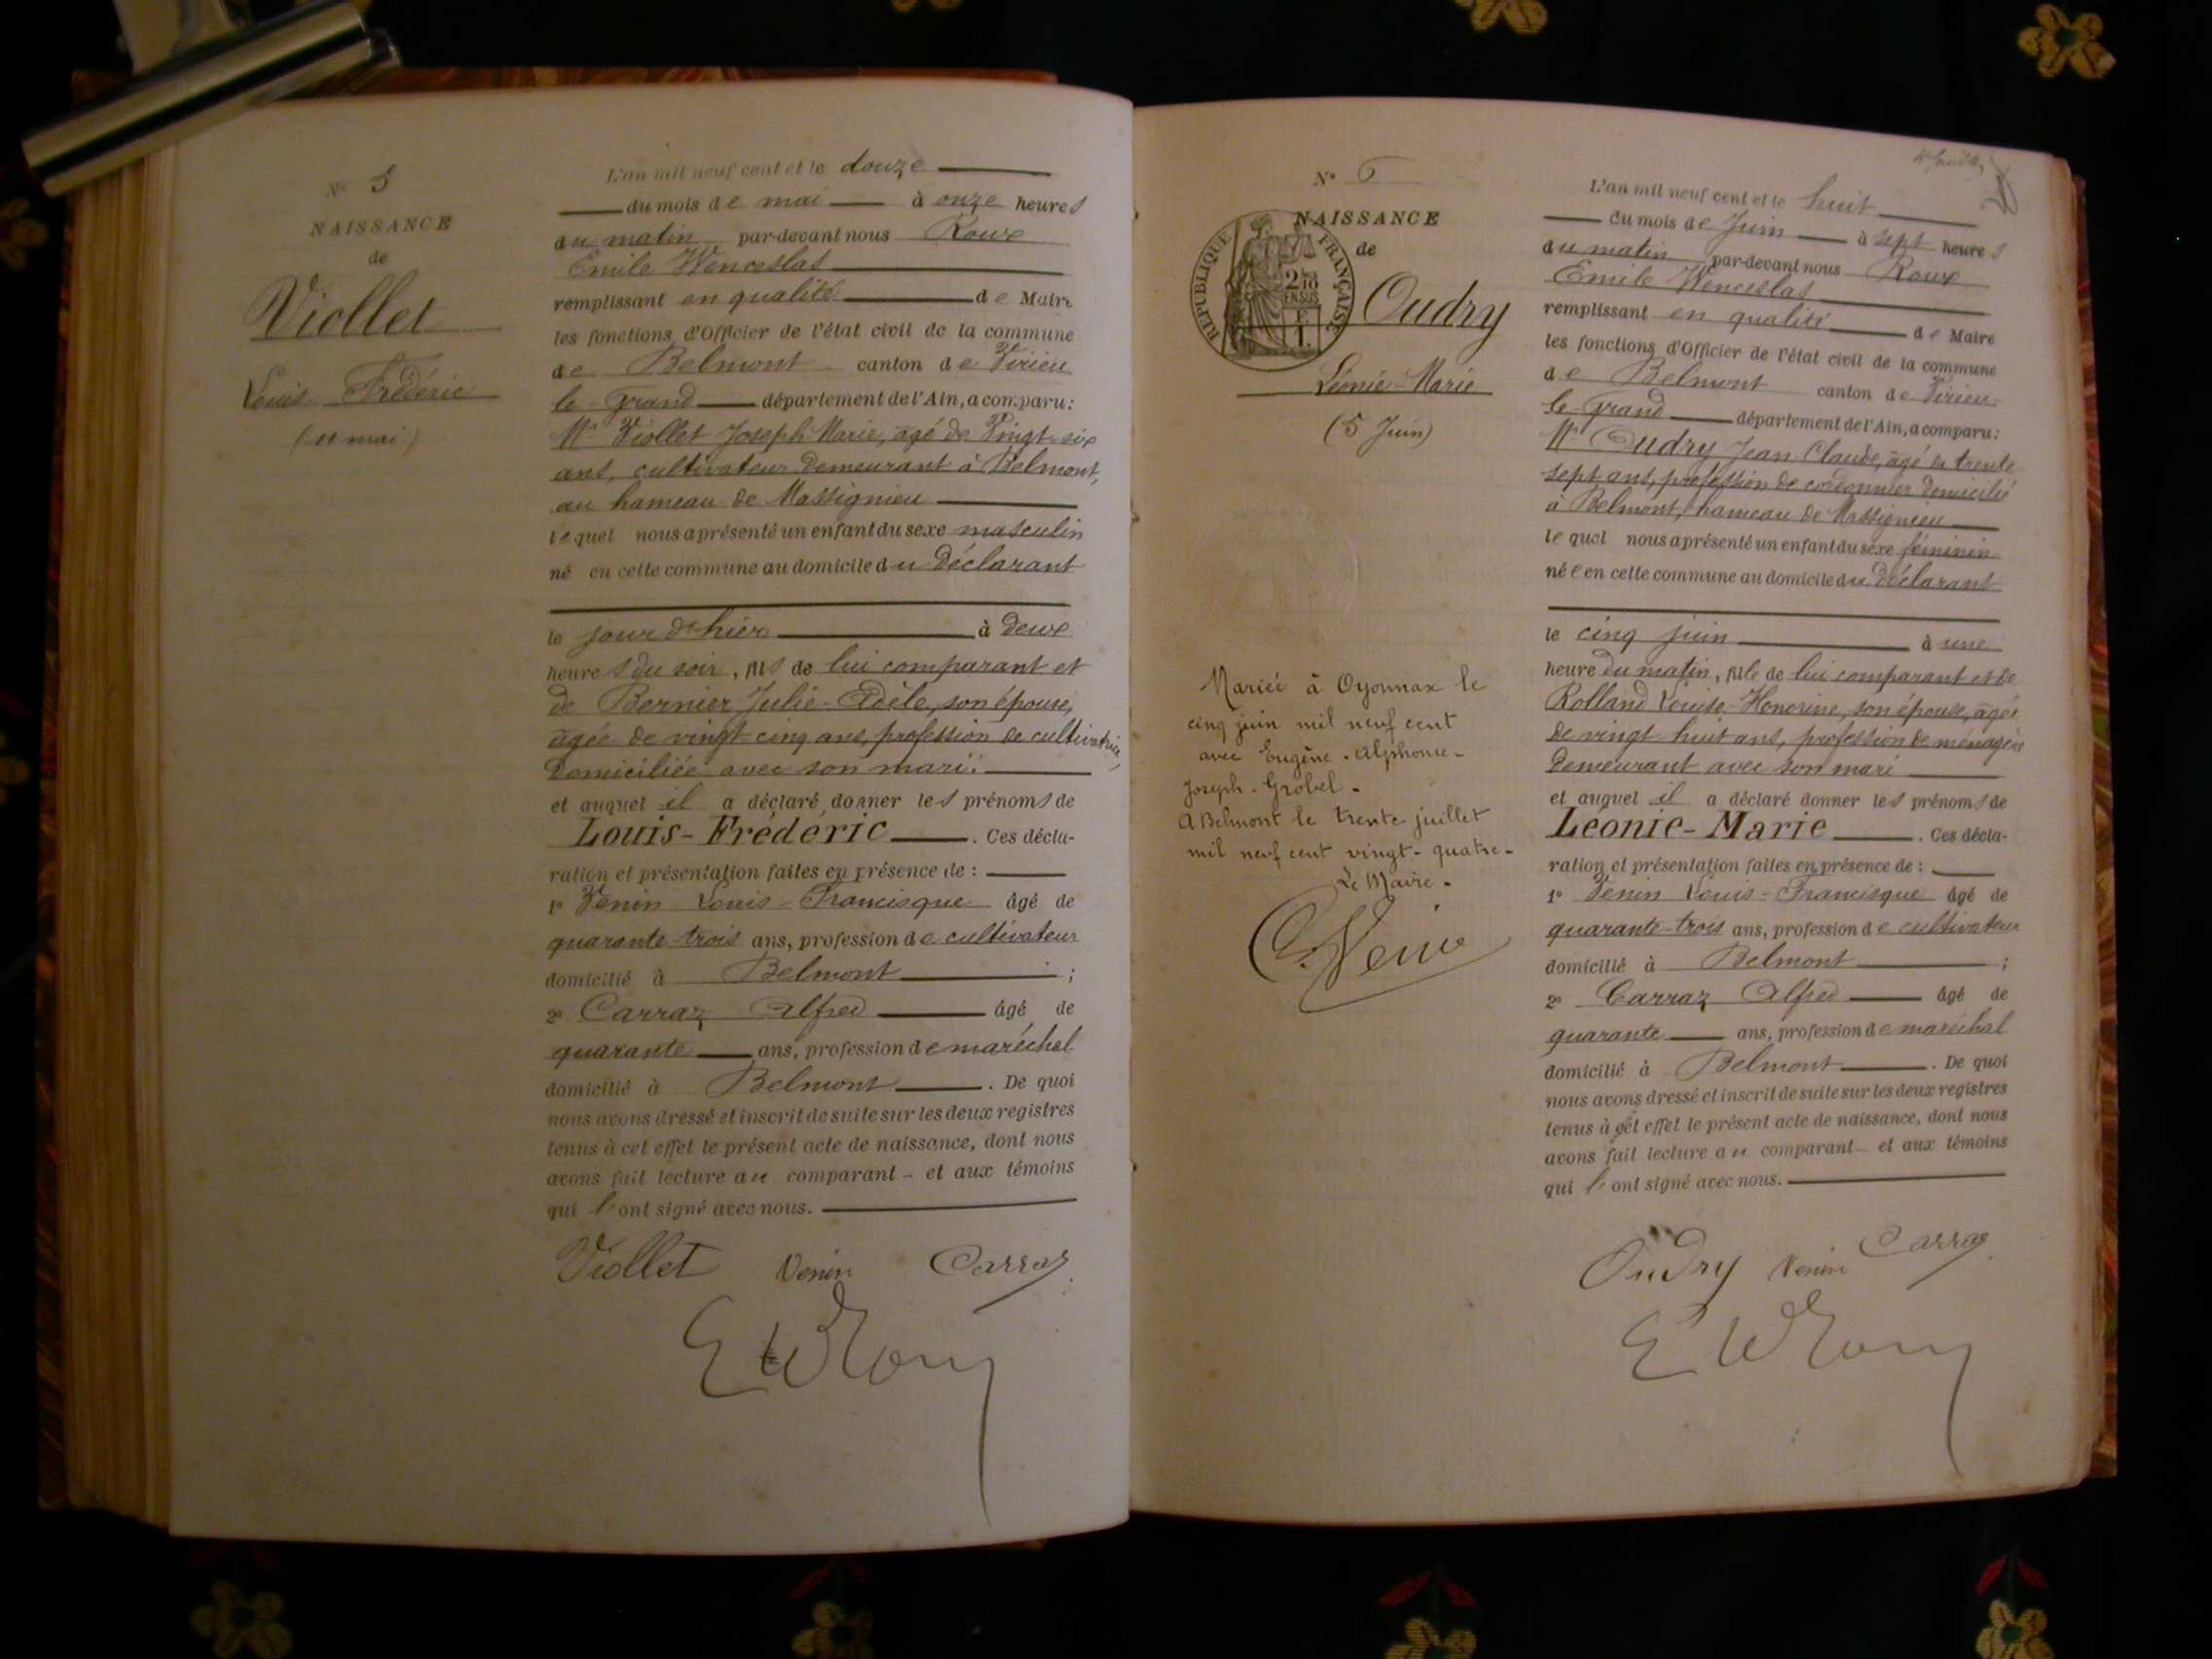 N° 5
NAISSANCE
de
Viollet
Louis-Frédéric
(11 mai)
L'an mil neuf cent et le douze
du mois de mai à onze heures
du matin par-devant nous Roux
Emile Wenceslas
remplissant en qualité de Maire
les fonctions d'Officier de l'état civil de la commune
de Belmont canton de Virieu
le-Grand département de l'Ain, a comparu:
Mr Viollet Joseph-Marie, âgé de Vingt-six
ans, cultivateur demeurant à Belmont,
au hameau de Massignieu
lequel nous a présenté un enfant du sexe masculin
né en cette commune au domicile du déclarant
le jour d'hier à deux
heures du soir, fils de lui comparant et
de Bernier Julie-Adèle, son épouse,
âgée de vingt-cinq ans, profession de cultivatrice,
domiciliée avec son mari.
et auquel il a déclaré donner les prénoms de
Louis-Frédéric. Ces décla-
ration et présentation faites en présence de :
1° Venin Louis-Francisque âgé de
quarante-trois ans, profession de cultivateur
domicilié à Belmont ;
2° Carraz Alfred âgé de
quarante ans, profession de maréchal
domicilié à Belmont. De quoi
nous avons dressé et inscrit de suite sur les deux registres
tenus à cet effet le présent acte de naissance, dont nous
avons fait lecture au comparant - et aux témoins
qui l'ont signé avec nous.
Viollet Venin Carraz
E W Roux
N° 6
NAISSANCE
de
REPUBLIQUE FRANÇAISE
2/10
EN SUS
F.
1.
Oudry
Léonie-Marie
(5 Juin)
Mariée à Oyonnax le
cinq juin mil neuf cent
avec Eugène-Alphonse-
Joseph-Grobel.
A Belmont le trente juillet
mil neuf cent vingt-quatre-
Le Maire.
Venin
L'an mil neuf cent et le huit
du mois de Juin à sept heures
du matin par-devant nous Roux
Emile Wenceslas
remplissant en qualité de Maire
les fonctions d'Officier de l'état civil de la commune
de Belmont canton de Virieu-
le Grand département de l'Ain, a comparu:
Mr Oudry Jean-Claude, âgé de trente
sept ans, profession de cordonnier domicilié
à Belmont, hameau de Massignieu
lequel nous a présenté un enfant du sexe féminin
née en cette commune au domicile du déclarant
le cinq juin à une
heure du matin, fille de lui comparant et de
Rolland Louise-Honorine, son épouse, âgée
de vingt huit ans, profession de ménagère
demeurant avec son mari
et auquel il a déclaré donner les prénoms de
Léonie-Marie. Ces décla-
ration et présentation faites en présence de :
1° Venin Louis-Francisque âgé de
quarante-trois ans, profession de cultivateur
domicilié à Belmont ;
2° Carraz Alfred âgé de
quarante ans, profession de maréchal
domicilié à Belmont. De quoi
nous avons dressé et inscrit de suite sur les deux registres
tenus à cet effet le présent acte de naissance, dont nous
avons fait lecture au comparant - et aux témoins
qui l'ont signé avec nous.
Oudry Venin Carraz
E W Roux